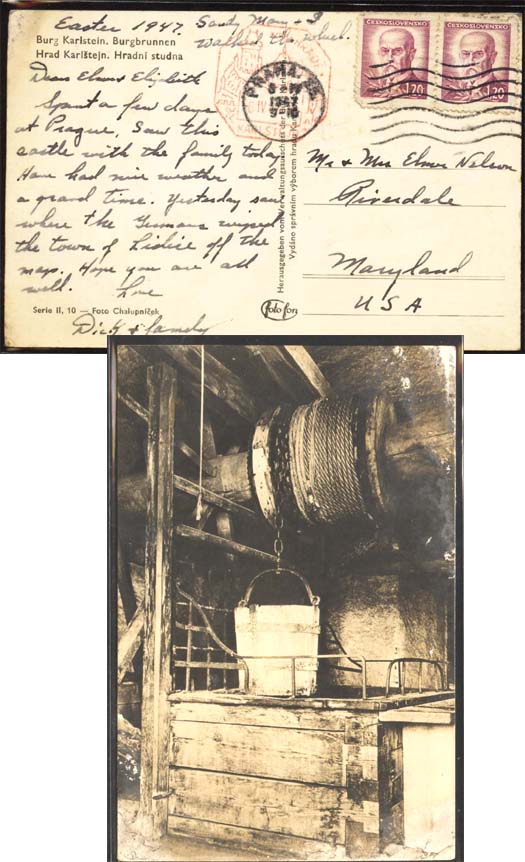 Easter 1947.
Sandy, Mary + I
walked the wheel.
Burg Karlstein. Burgbrunnen
Hrad Karlštejn. Hradní studna
Dear Elmer Elizabeth
Spent a few days
at Prague. Saw this
castle with the family today.
Have had nice weather and
a grand time. Yesterday saw
where the Germans wiped
the town of Lidice off the
map. Hope you are all
well. Love
Dick & family
Serie II, 10 — Foto Chalupníček
Herausgegeben vom Verwaltungsausschuss der Burg
Vydáno správním výborem hradu
foto fon
ČESKOSLOVENSKO
1.20
ČESKOSLOVENSKO
1.20
PRAHA
1947
Mr & Mrs Elmer Nelson
Riverdale
Maryland
USA